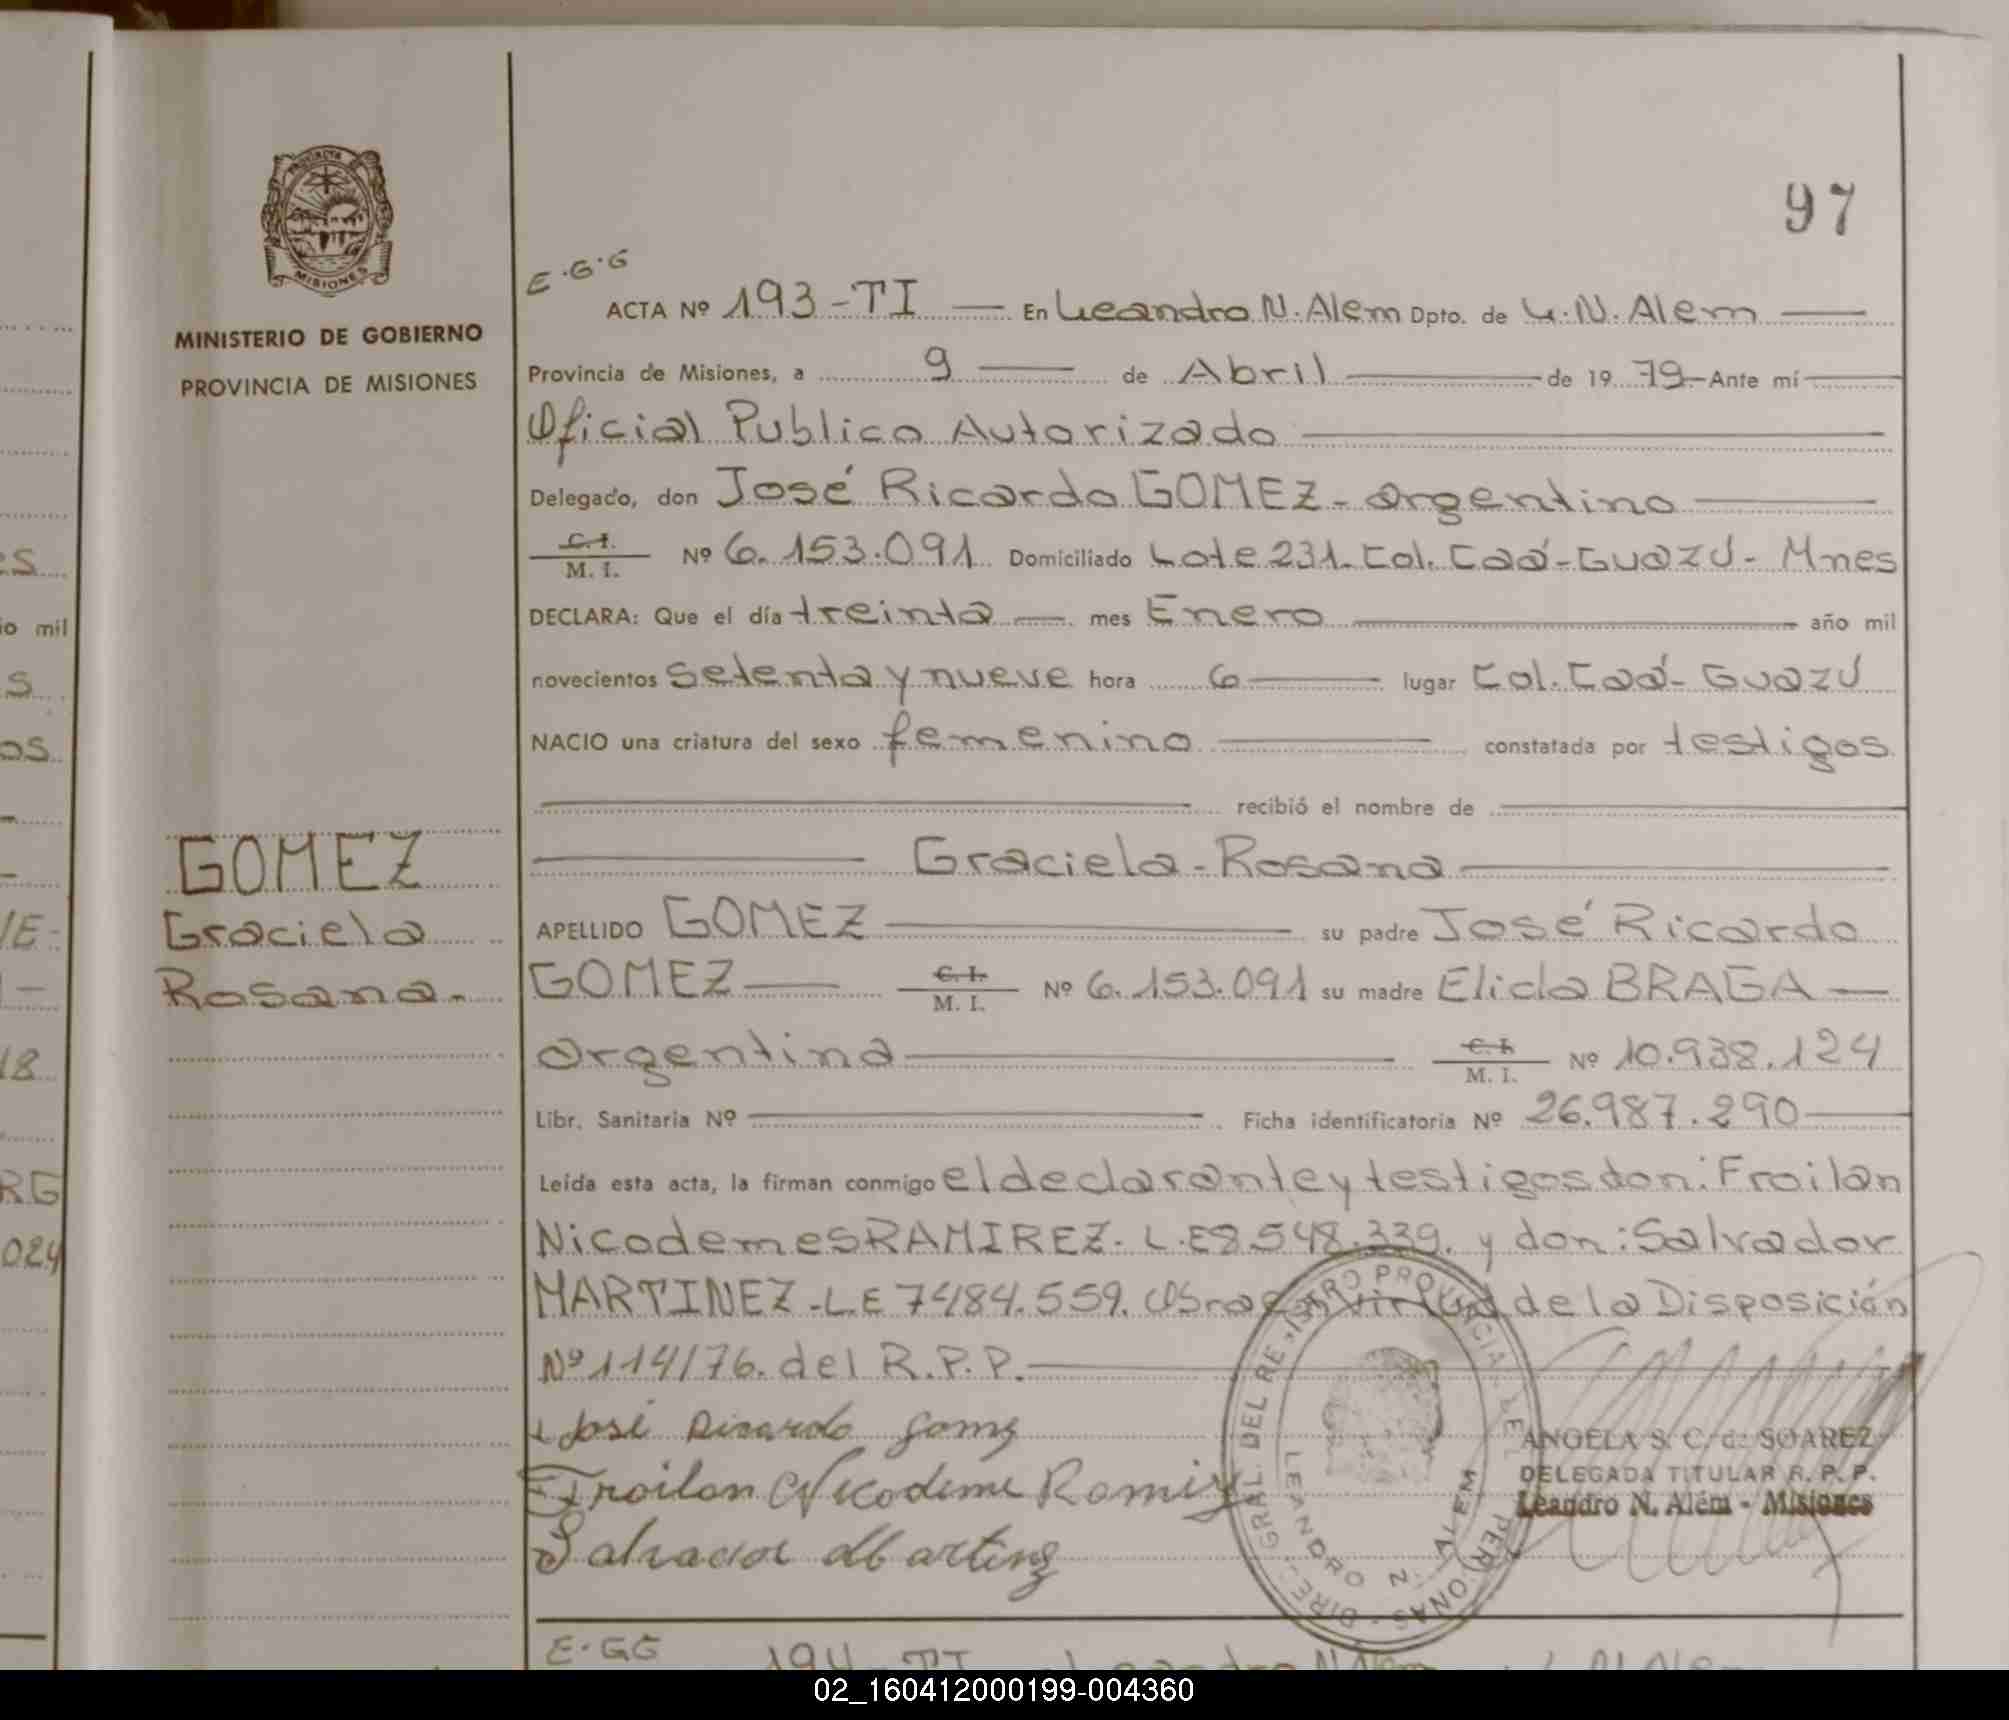 97
PROVINCIA DE
MISIONES
MINISTERIO DE GOBIERNO
PROVINCIA DE MISIONES
E.G.G
ACTA Nº 193-TI En Leandro N. Alem Dpto. de L.N. Alem
Provincia de Misiones, a 9 de Abril de 19 79 Ante mí
Oficial Publico Autorizado
Delegado, don José Ricardo GOMEZ - argentino
C.I.
M. I. Nº 6.153.091 Domiciliado Lote 231. Col. Caá-Guazú - Mnes
DECLARA: Que el día treinta mes Enero año mil
novecientos setenta y nueve hora 6 lugar Col. Caá-Guazú
NACIO una criatura del sexo femenino constatada por testigos
recibió el nombre de
Graciela - Rosana
APELLIDO GOMEZ su padre José Ricardo
GOMEZ C.I.
M. I. Nº 6.153.091 su madre Elida BRAGA
argentina C.I.
M. I. Nº 10.938.124
Libr. Sanitaria Nº Ficha identificatoria Nº 26.987.290
Leída esta acta, la firman conmigo el declarante y testigos don: Froilan
Nicodemes RAMIREZ. L.E 8.548.339. y don: Salvador
MARTINEZ - L.E 7484.559. Obra en virtud de la Disposición
Nº 114/76. del R.P.P.
José Ricardo Gomez
Froilan Nicodeme Ramirez
Salvador Martinez
GOMEZ
Graciela
Rosana.
DIREC. GRAL. DEL REGISTRO PROVINCIAL DE PERSONAS
LEANDRO N. ALEM
ANGELA S. C. de SOAREZ
DELEGADA TITULAR R. P. P.
Leandro N. Além - Misiones
E.GG 194-TI Leandro N. Alem L.N. Alem
es
io mil
s
os
18
RG
024
02_160412000199-004360